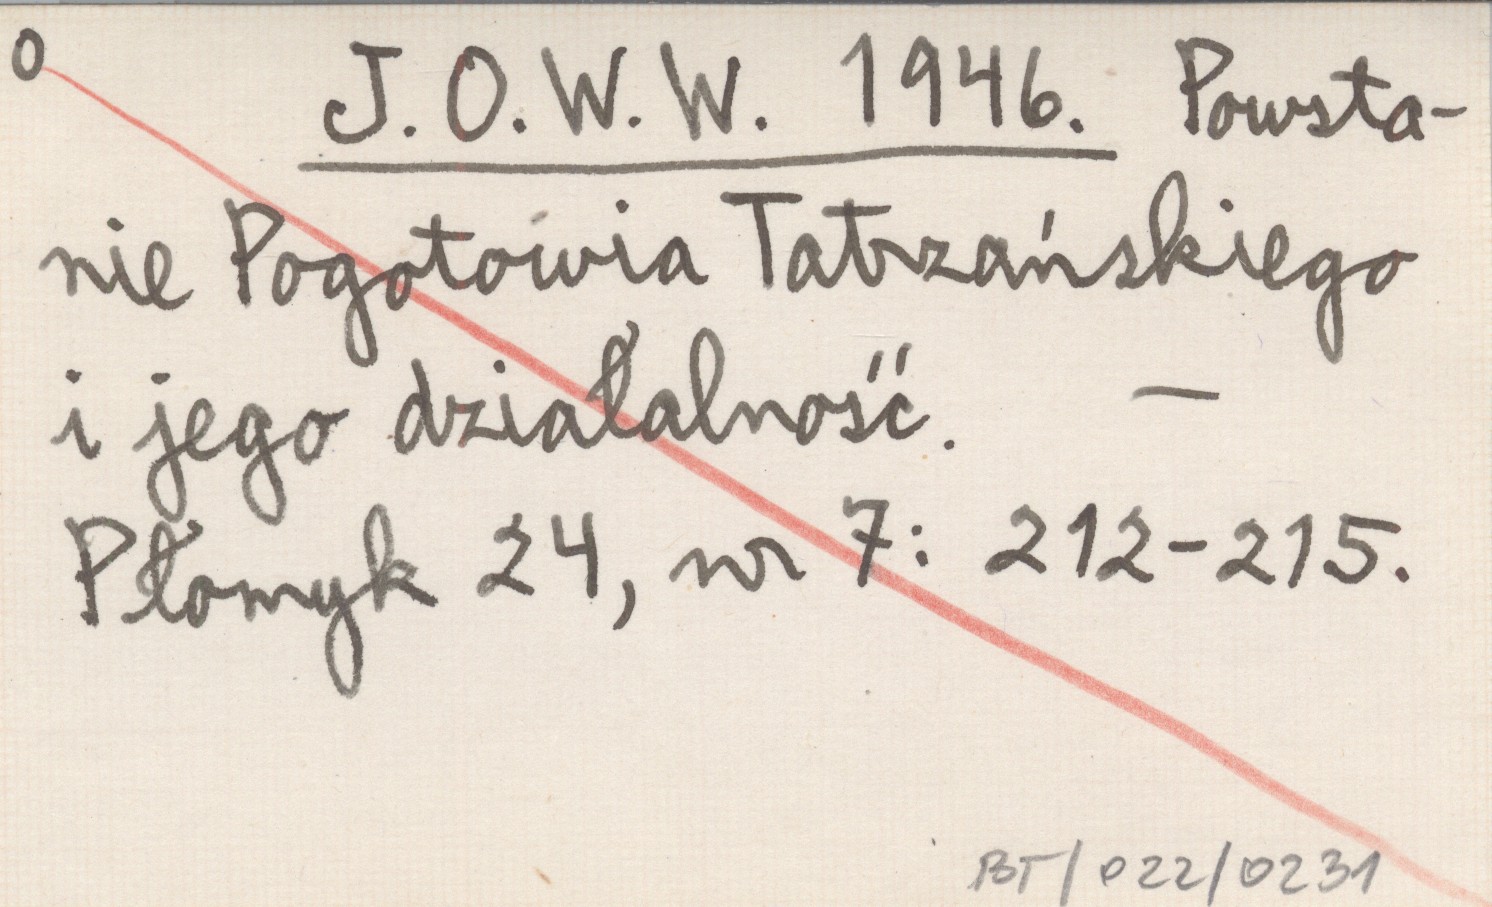 0
J. O. W. W. 1946. Powsta-
nie Pogotowia Tatrzańskiego
i jego działalność. —
Płomyk 24, nr 7: 212-215.
BT/022/0231